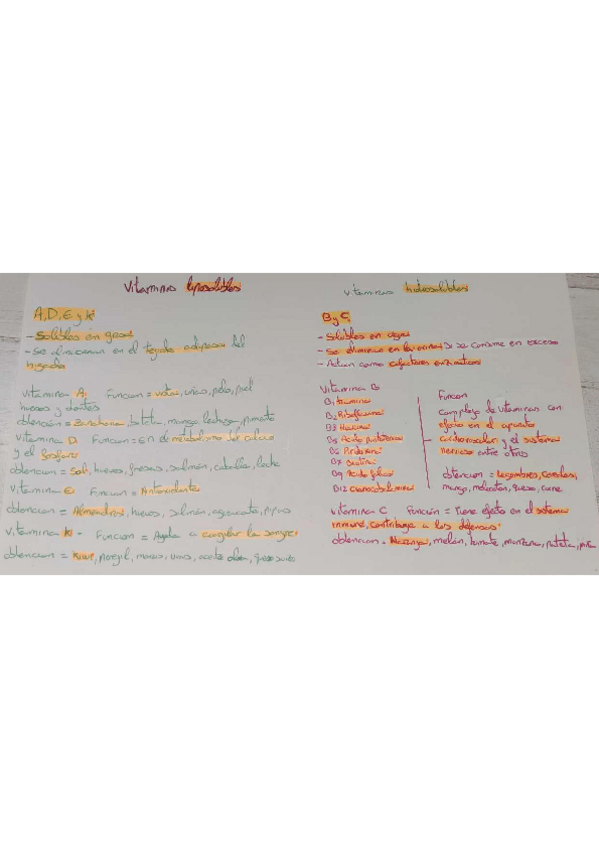 Vitaminas liposolibles
A, D, E y K
- Solibles en grasa
- Se almacenan en el tegido adiposo del higado
vitamina A: Funcion = vista, unas, pelo, piel
huesos y dientes
obtención = Zanahoria, batata, mango, lechosa, pimiento
vitamina D. Funcion = En de metabolismo del calcio
y el fosforo
obtencion = Sol, huevos, fresas, salmón, caballa, leche
vitamina E: Funcion = Antioxidante
obtencion = Almendras, huevos, salmón, aguacate,
vitamina K - Funcion = Ayuda a coagular la sangre.
obtencion = Kiwi, perejil, uvas, aceite oliva, queso
vitaminas hidrosolibles
B y C
- Solibles en agua
- Se eliminan en la orina si se consume en exceso
- Actuan como cofactores enzimaticos
Vitamina B
B1 tiamina
B2 Riboflavina
B3 Niacina
B5 Acido pantotenico
B6 Piridoxina
B7 Biotina
B9 Acido folico
B12 Cianocobalamina
Funcion
complejo de vitaminas con
efecto en el aparato
cardiovascular y el sistema
nervioso entre otros
obtencion = Legumbres, Cereales,
mango, melocoton, queso, carne
vitamina C Funcion = Tiene efecto en el sistema
inmune, contribuye a las defensas.
obtencion = Naranja, melón, tomate, manzana, patata, piña